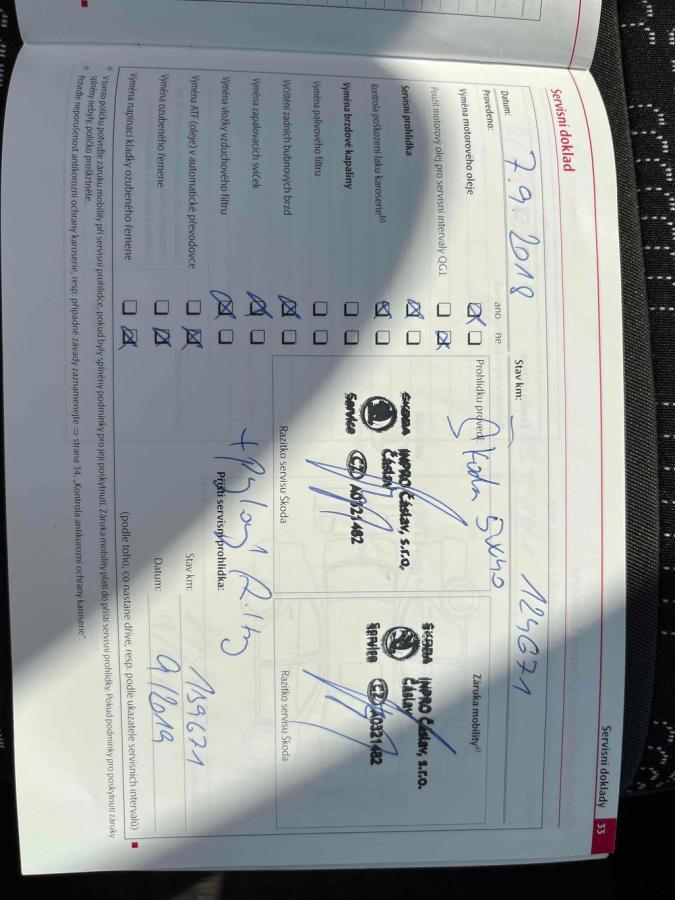 Servisní doklady 33
Servisní doklad
Datum: 7.9.2018 Stav km: 124671
Provedeno: ano ne
Výměna motorového oleje
Použit motorový olej pro servisní intervaly QG1
Servisní prohlídka
Kontrola poškození laku karoserie b)
Výměna brzdové kapaliny
Výměna palivového filtru
Vyčištění zadních bubnových brzd
Výměna zapalovacích svíček
Výměna vložky vzduchového filtru
Výměna ATF (oleje) v automatické převodovce
Výměna ozubeného řemene
Výměna napínací kladky ozubeného řemene
Prohlídku provedl
Škoda 5W40
ŠKODA INPRO Čáslav, s.r.o.
Čáslav
Service CZ A0321482
Razítko servisu Škoda
Záruka mobility a)
ŠKODA INPRO Čáslav, s.r.o.
Čáslav
Service CZ A0321482
Razítko servisu Škoda
+ Pylový
Příští servisní prohlídka:
Stav km: 139671
Datum: 9/2019
(podle toho, co nastane dříve, resp. podle ukazatele servisních intervalů)
a) V tomto políčku potvrďte záruku mobility při servisní prohlídce, pokud byly splněny podmínky pro její poskytnutí. Záruka mobility platí do příští servisní prohlídky. Pokud podmínky pro poskytnutí záruky
splněny nebyly, políčko proškrtněte.
b) Potvrďte neporušenost antikorozní ochrany karoserie, resp. případné závady zaznamenejte ⇒ strana 54, „Kontrola antikorozní ochrany karoserie“.